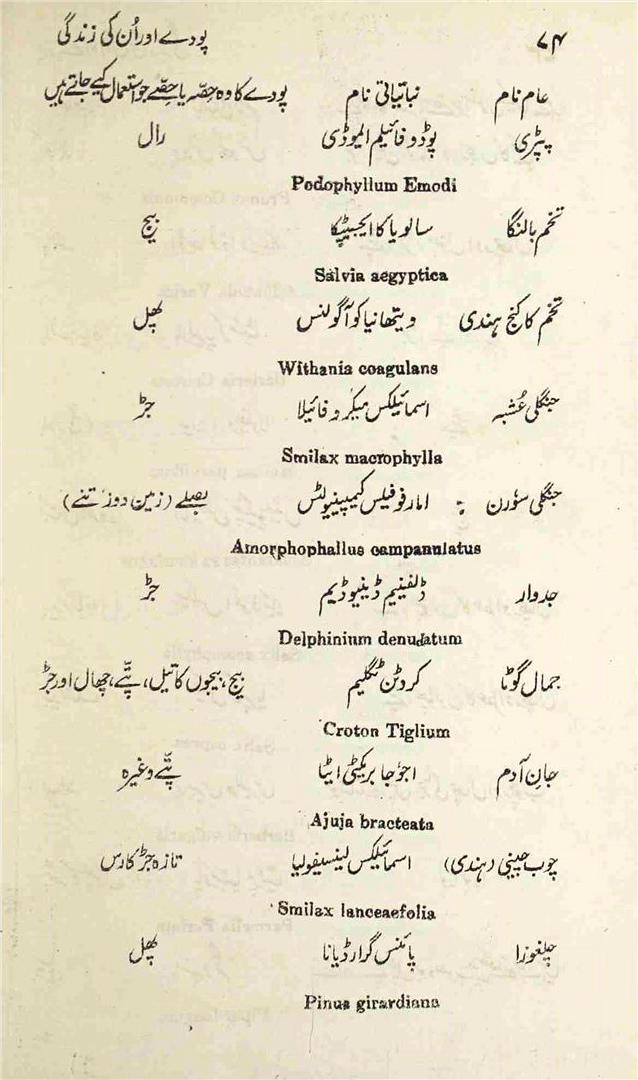 ۷۴ پودے اور اُن کی زندگی
عام نام نباتیاتی نام پودے کا وہ حِصّہ یا حِصّے جو استعمال کیے جاتے ہیں
پپڑی پوڈوفائیلم الموڈی رال
Podophyllum Emodi
تخم بالنگا سالویا کا ایجبیٹپکا بیج
Salvia aegyptica
تخم کاکنج ہندی ویتھانیا کوآگولنس پھل
Withania coagulans
جنگلی عُشبہ اسمائیلکس میکروفائیلا جڑ
Smilax macrophylla
جنگلی سوُرن امارفوفیلس کیمپینیولٹس بصلے (زمین دوز تنے)
Amorphophallus campanulatus
جدوار ڈلفینیم ڈینیوڈیم جڑ
Delphinium denudatum
جمال گوٹا کروٹن ٹگلیم بیج، بیجوں کا تیل، پتّے، چھال اور جڑ
Croton Tiglium
جانِ آدم اجوُجا بریکٹی اٹیا پتّے وغیرہ
Ajuja bracteata
چوب چینی (ہندی) اسمائیلکس لینسیفولیا تازہ جڑ کا رس
Smilax lanceaefolia
چلغوزا پائنس گرارڈیانا پھل
Pinus girardiana